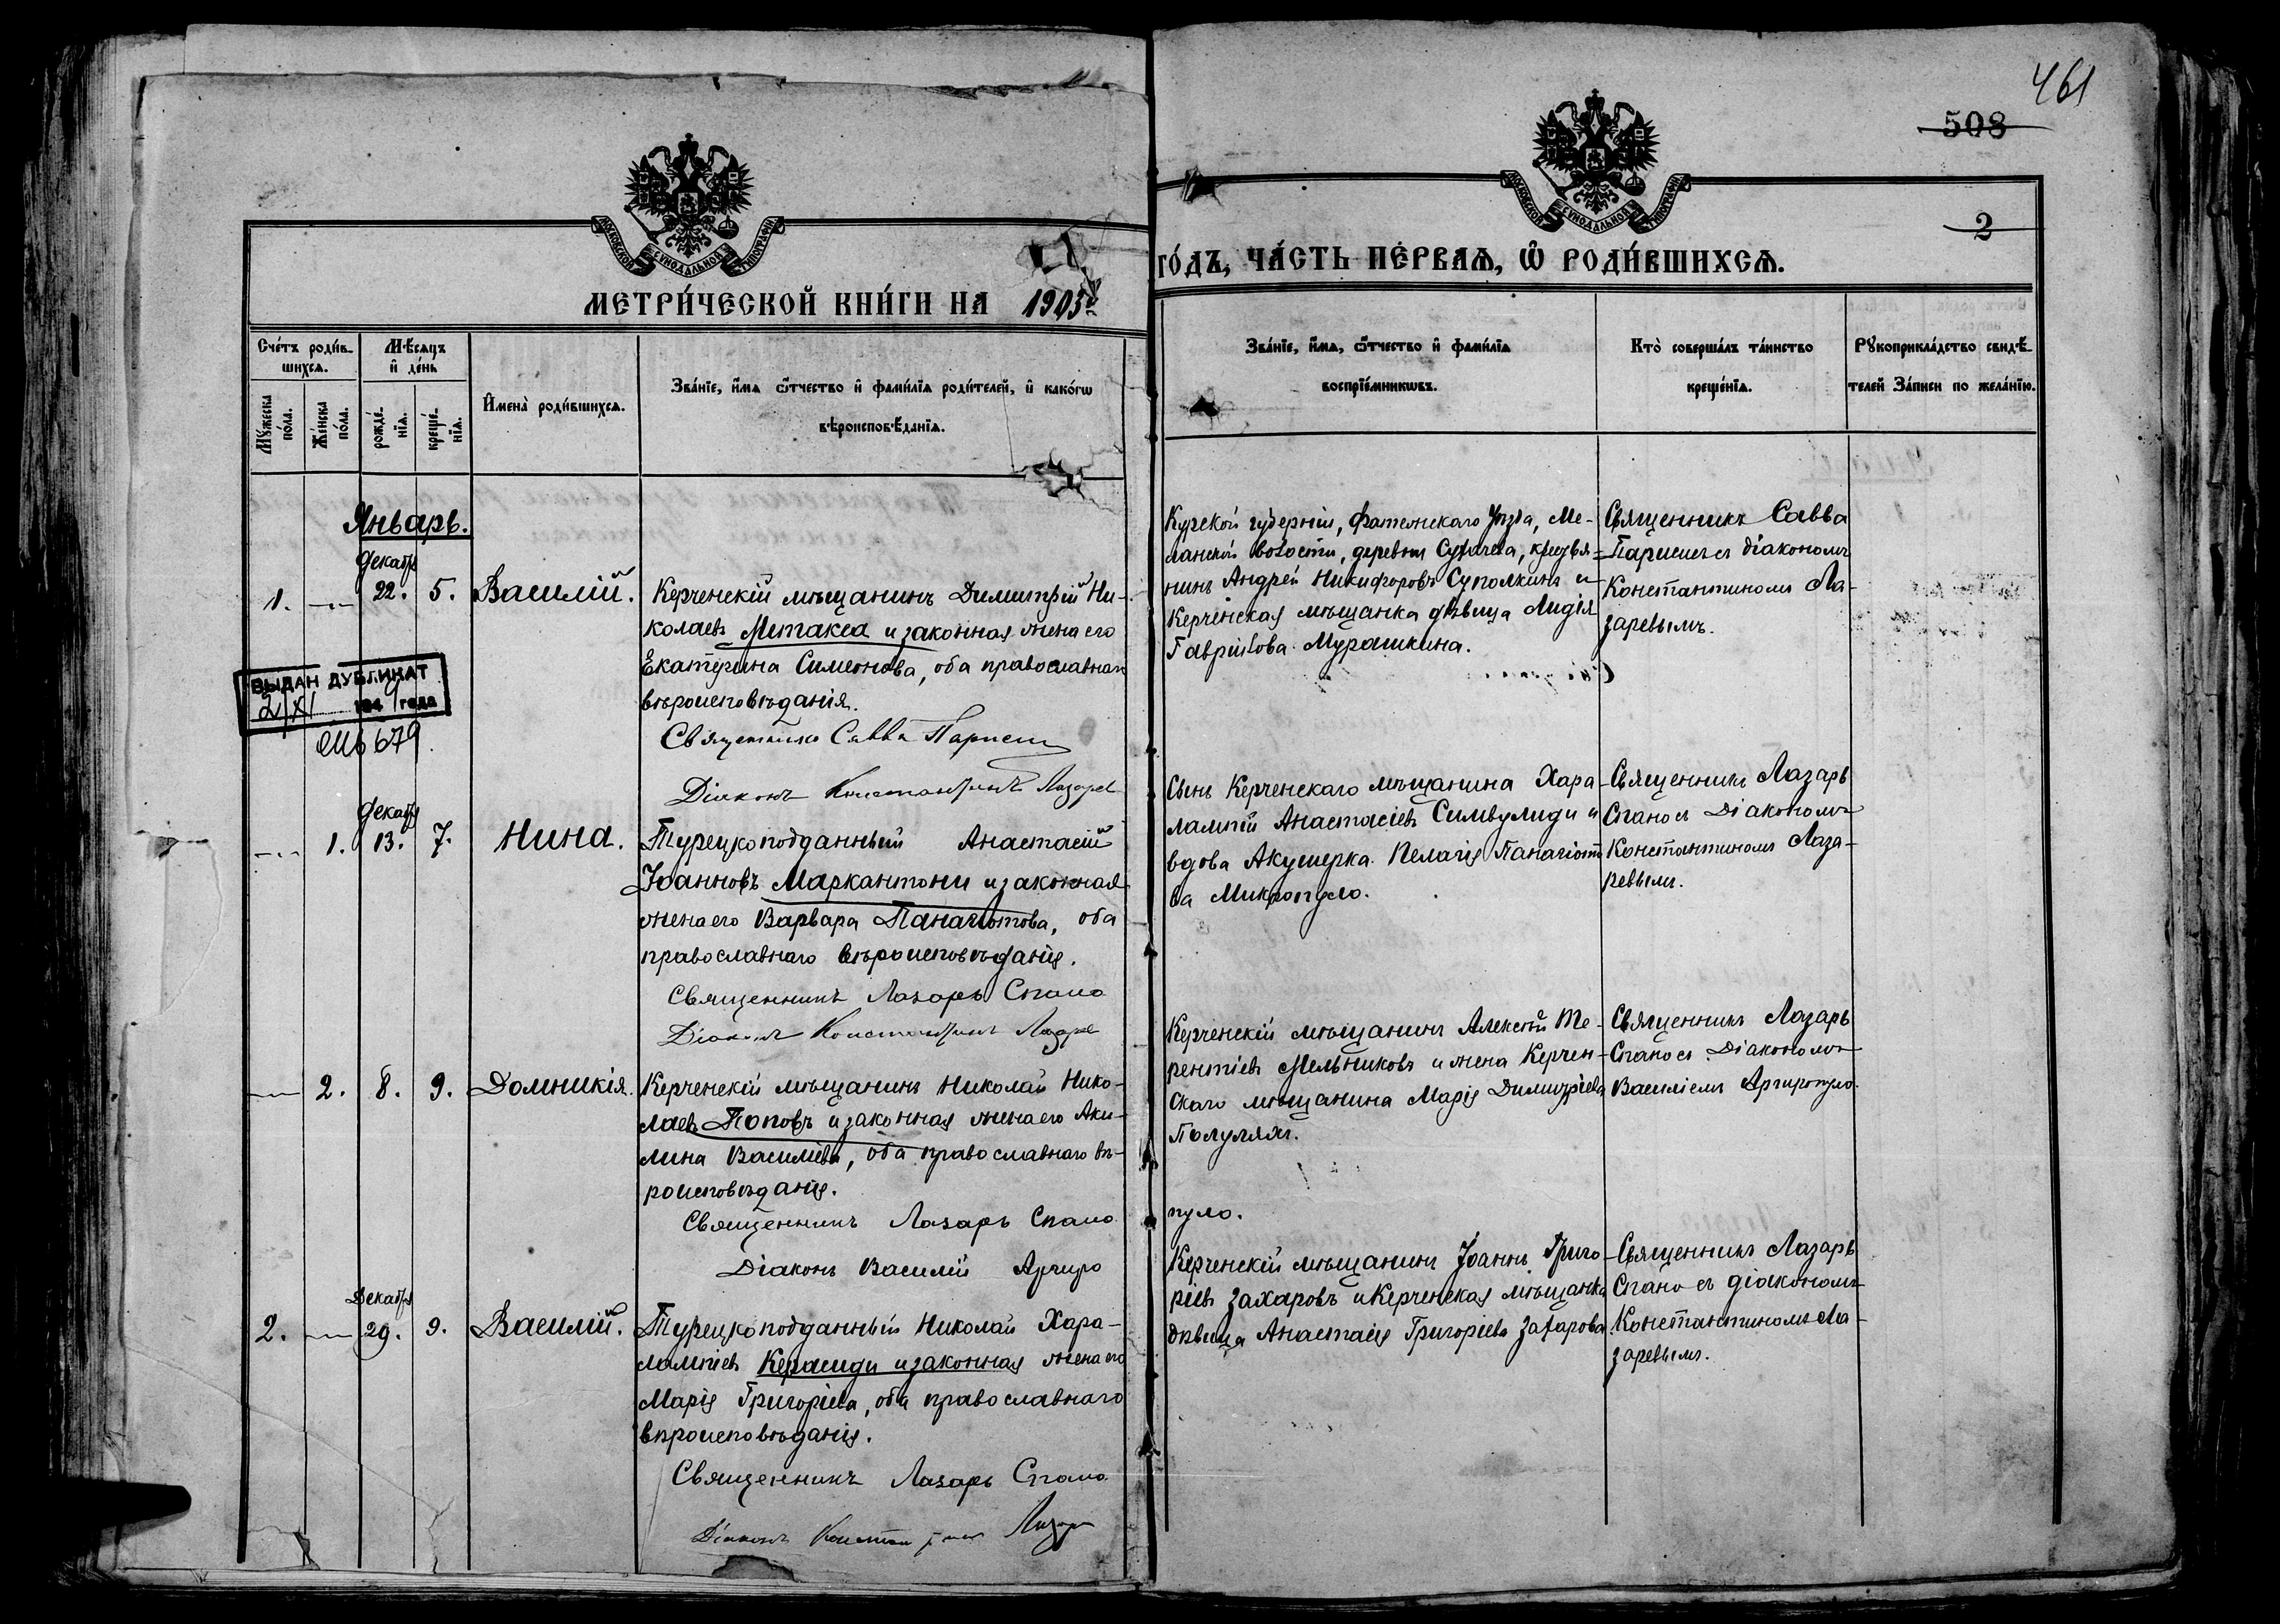 461
508
2
МОСКОВСКОЙ СѴНОДАЛЬНОЙ ТИПОГРАФІИ
МОСКОВСКОЙ СѴНОДАЛЬНОЙ ТИПОГРАФІИ
МЕТРИ́ЧЕСКОЙ КНИ́ГИ НА 1903
ГО́ДЪ, ЧА́СТЬ ПЕ́РВАЯ, Ѡ҆ РОДИ́ВШИХСЯ.
Сче́тъ роди́в-
шихся.
Мꙋ́жеска по́ла.
Же́нска по́ла.
Мѣ́сяцъ
и҆ де́нь
рожде́-
нїя.
креще́-
нїя.
И҆мена̀ роди́вшихся.
Зва́нїе, и҆́мя ѻ҆́тчество и҆ фами́лїя роди́телей, и҆ како́гѡ
вѣроисповѣ́данїя.
Зва́нїе, и҆́мя, ѻ҆́тчество и҆ фами́лїя
воспрїе́мникѡвъ.
Кто̀ соверша́лъ та́инство
креще́нїя.
Рꙋкоприкла́дство свидѣ́-
телей За́писи по жела́нїю.
Январь.
Декабр
1. — 22. 5. Василій.
Керченскій мѣщанинъ Димитрій Ни-
колаевъ Метакса и законная жена его
Екатерина Симеонова, оба православнаго
вѣроисповѣданія.
Священникъ Савва Париси
Діаконъ Константинъ Лазарев
Курской губерніи, Фатежскаго Уѣзда, Ме-
ланской волости, деревни крестья-
нинъ Андрей Никифоровъ и
Керченская мѣщанка дѣвица Лидія
Гаврилова Мурашкина.
Священникъ Савва
Париси съ діакономъ
Константиномъ Ла-
заревымъ.
ВЫДАН ДУБЛИКАТ
2/XI 194 года
679
Декабр
— 1. 13. 7. Нина.
Турецкоподданный Анастасій
Іоанновъ Маркантони и законная
жена его Варвара Панаіотова, оба
православнаго вѣроисповѣданія.
Священникъ Лазарь Спано
Діаконъ Константинъ Лазарев
Сынъ Керченскаго мѣщанина Хара-
лампій Анастасіевъ Симвулиди и
вдова Акушерка Пелагія Панагіото
ва Микропуло.
Священникъ Лазарь
Спано съ Діакономъ
Константиномъ Лаза-
ревымъ.
— 2. 8. 9. Домникія.
Керченскій мѣщанинъ Николай Нико-
лаевъ Поповъ и законная жена его Аки-
лина Васильева, оба православнаго вѣ-
роисповѣданія.
Священникъ Лазарь Спано
Діаконъ Василій Аргиро
пуло.
Керченскій мѣщанинъ Алексѣй Те-
рентіевъ Мельниковъ и жена Керчен-
скаго мѣщанина Марія Димитріева
Полулях.
Священникъ Лазарь
Спано съ Діакономъ
Василіемъ Аргиропуло.
Декабр
2. — 29. 9. Василій.
Турецкоподданный Николай Хара-
лампіевъ Керасиди и законная жена его
Марія Григоріева, оба православнаго
вѣроисповѣданія.
Священникъ Лазарь Спано
Діаконъ Константинъ Лазарев
Керченскій мѣщанинъ Іоаннъ Григо-
ріевъ Захаровъ и Керченская мѣщанка
дѣвица Анастасія Григоріева Захарова.
Священникъ Лазарь
Спано съ діакономъ
Константиномъ Ла-
заревымъ.